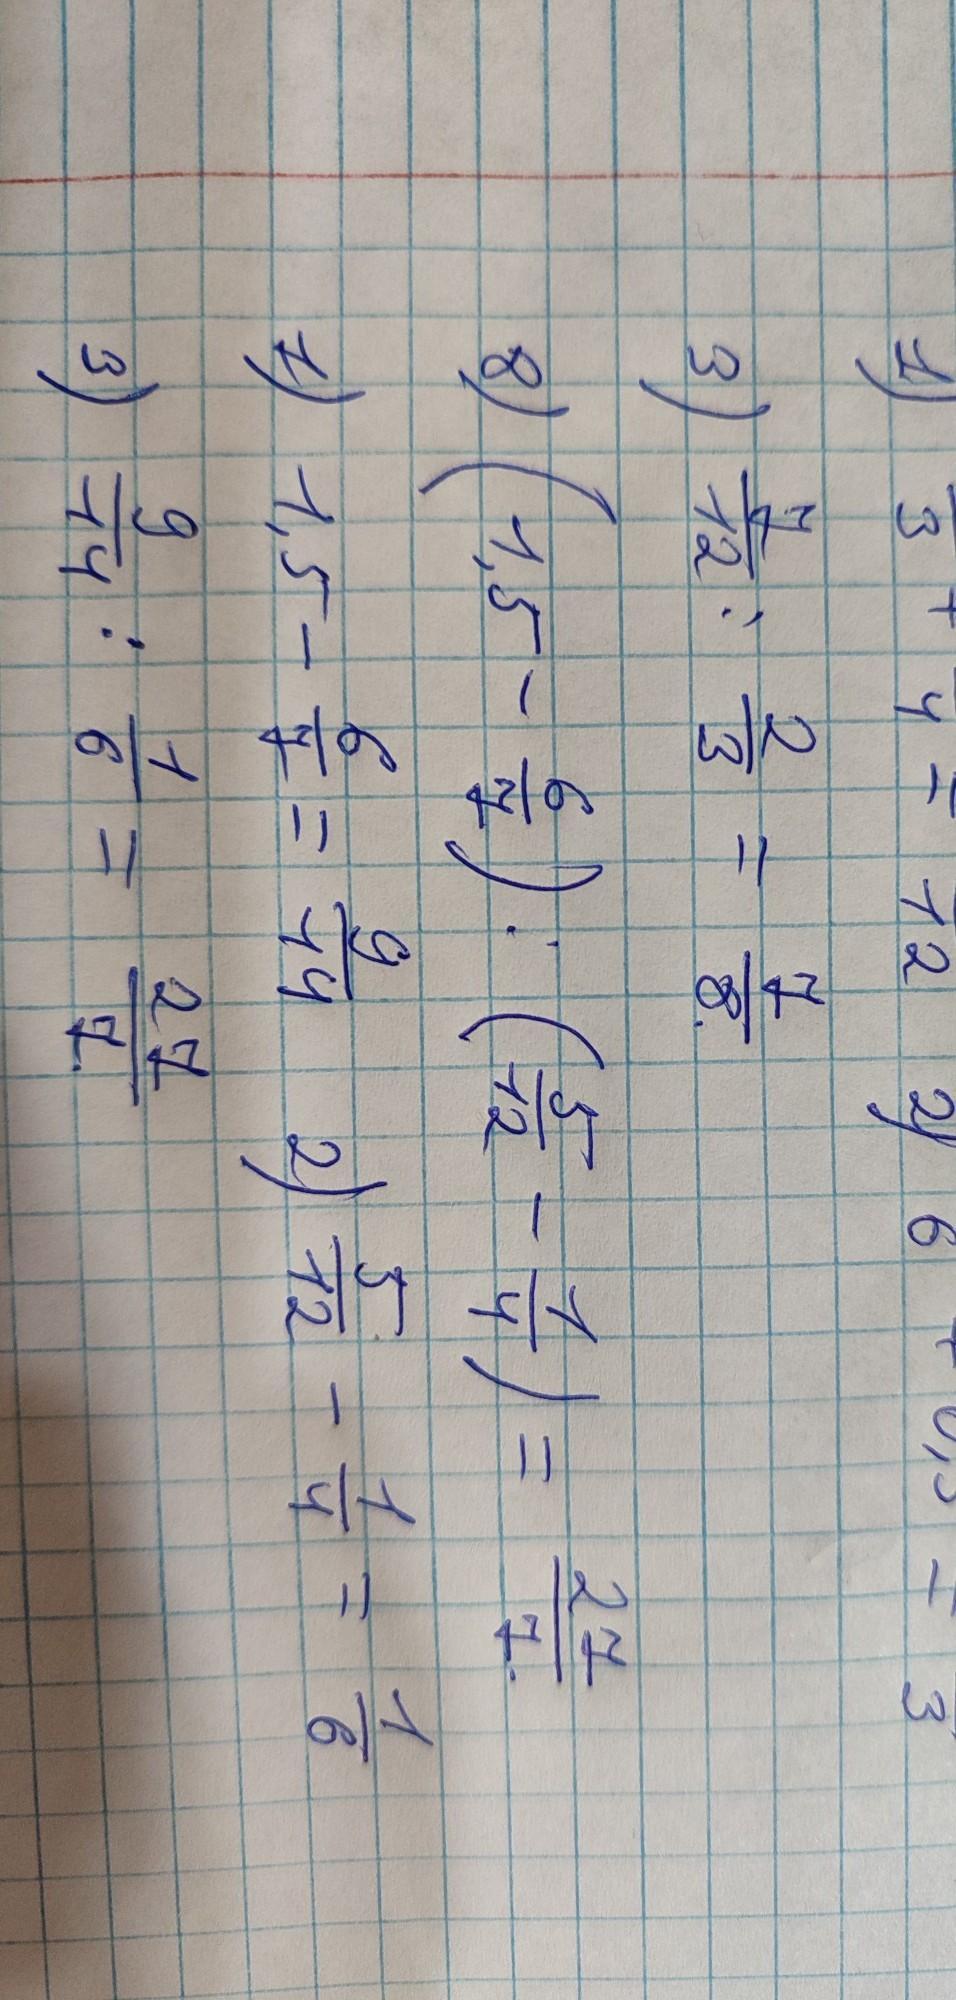 1) /3 + /4 = /12 2) 6 + 0,5 = /3
3) 7/12 : 2/3 = 7/8.
8) (1,5 - 6/7) : (5/12 - 1/4) = 27/7.
1) 1,5 - 6/7 = 9/14 2) 5/12 - 1/4 = 1/6
3) 9/14 : 1/6 = 27/7.